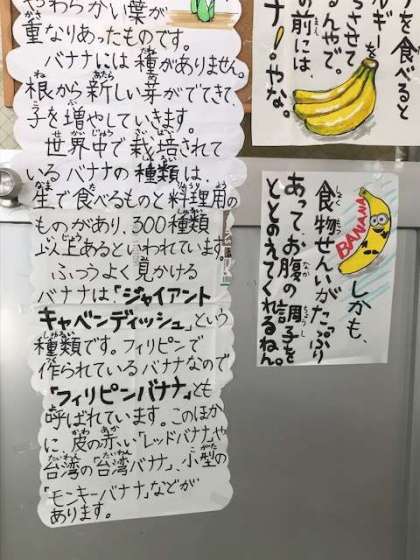 やわらかい葉が
重なりあったものです。
バナナには種がありません。
根から新しい芽がでてきて、
子を増やしていきます。
世界中で栽培されて
いるバナナの種類は、
生で食べるものと料理用の
ものがあり、300種類
以上あるといわれています。
ふつうよく見かける
バナナは、「ジャイアント
キャベンディッシュ」という
種類です。フィリピンで
作られているバナナなので
「フィリピンバナナ」とも
呼ばれています。このほか
に皮の赤い「レッドバナナ」や
台湾の「台湾バナナ」、小型の
「モンキーバナナ」などが
あります。
を食べると
ルギーを
させて
るんやで。
の前には、
ナ！やな。
BANANA
しかも、
食物せんいがたっぷり
あって、お腹の調子を
ととのえてくれるねん。